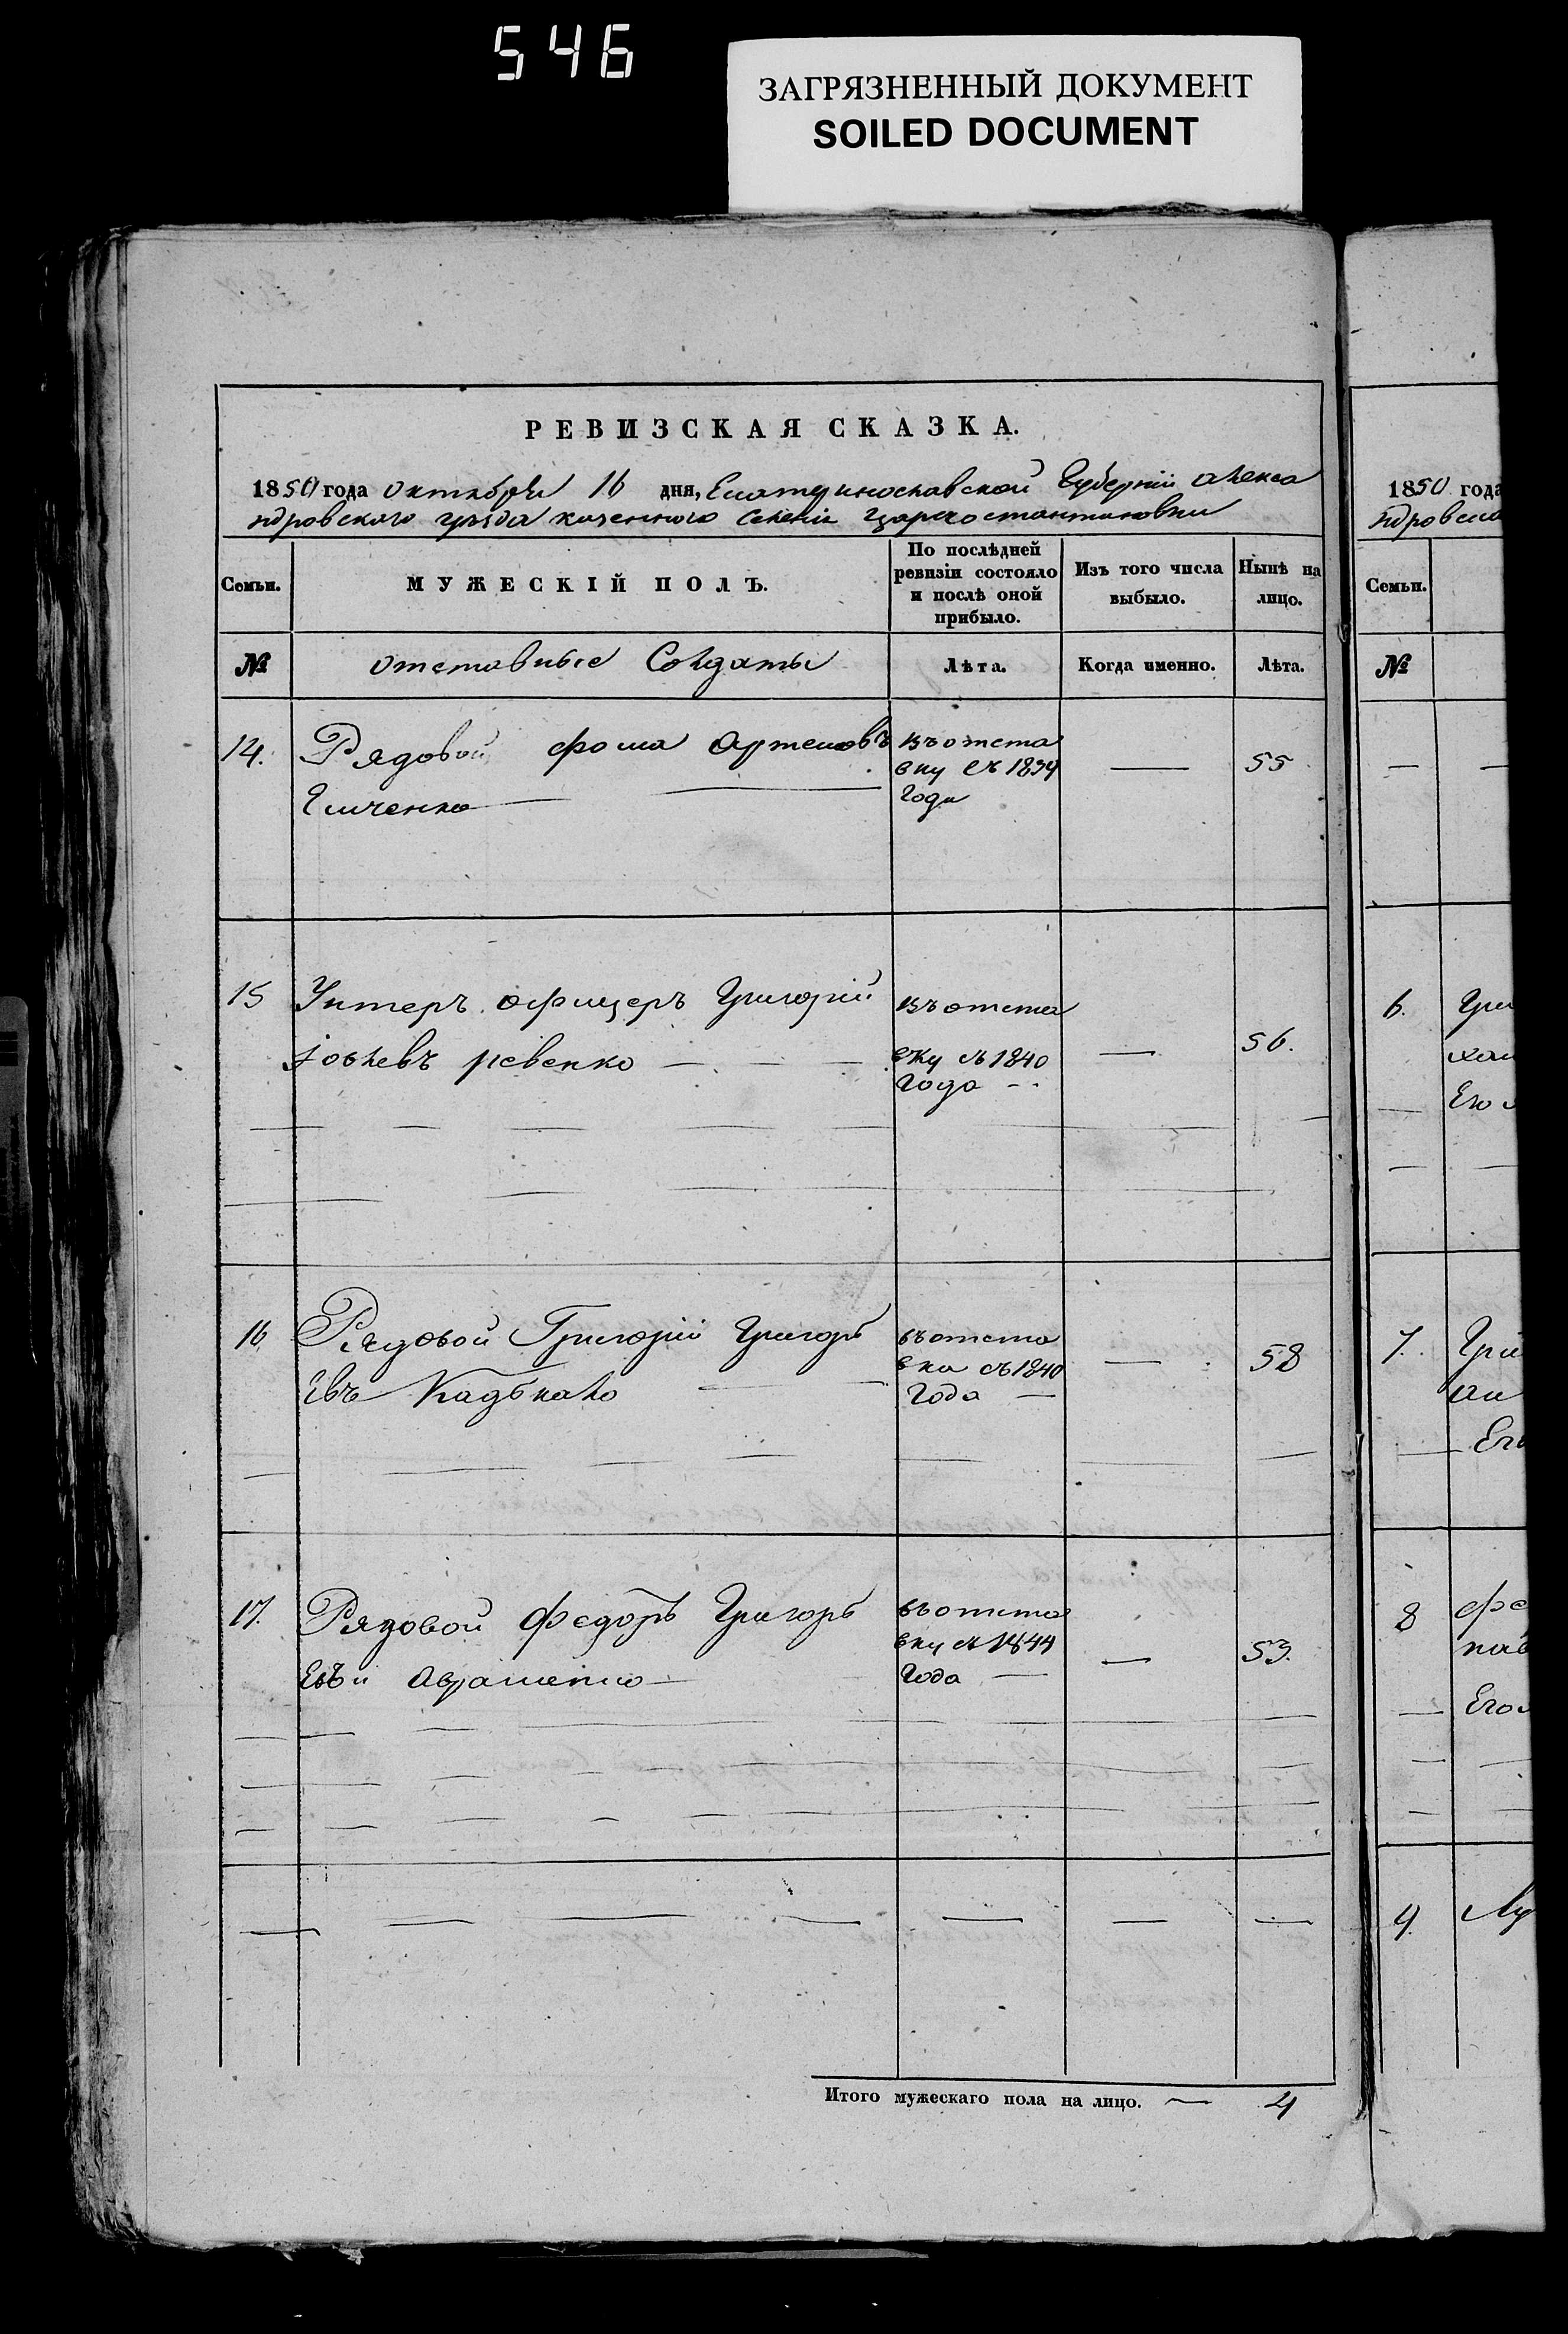 546
ЗАГРЯЗНЕННЫЙ ДОКУМЕНТ
SOILED DOCUMENT
РЕВИЗСКАЯ СКАЗКА.
1850 года октября 16 дня, Екатеринославской Губерніи алекса
ндровского уѣзда казенного Селенія Царекостантиновки
Семьи.
МУЖЕСКІЙ ПОЛЪ.
По послѣдней
ревизіи состояло
и послѣ оной
прибыло.
Изъ того числа
выбыло.
Нынѣ на
лицо.
№
отставные Солдаты
Лѣта.
Когда именно.
Лѣта.
14. Рядовой фома Артемовъ въ отста — 55
вку съ 1834
года
15 Унтеръ офицеръ Григорій въ отста
Іовлевъ ревенко — вку съ 1840 — 56.
года
16 Рядовой Григорій Григорь въ отста — 58
Евъ вка съ 1840
года —
17. Рядовой федоръ Григорь въ отста
вку съ 1844 — 53.
Авраменко — года —
Итого мужескаго пола на лицо. — 4
1850 года
ндровско
Семьи.
№
6. Гри
Его
7. Гри
Его
8 фе
Его
9.